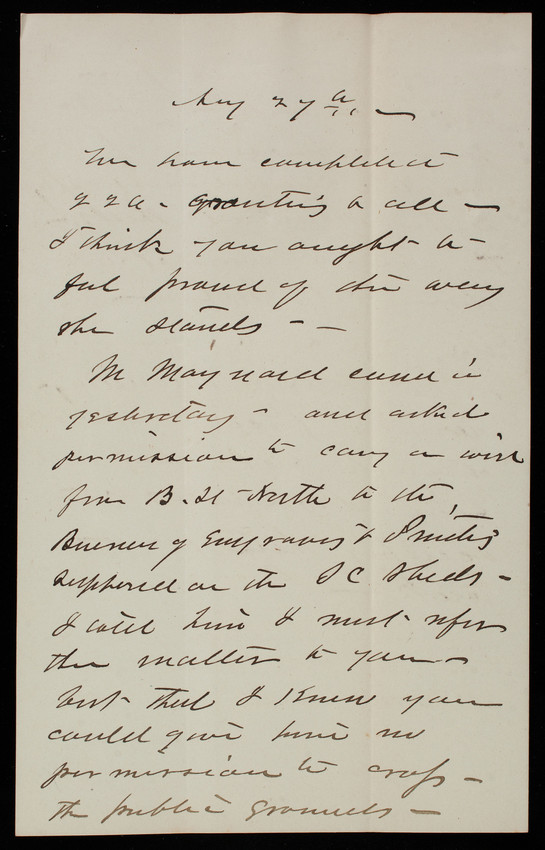 Aug 27th —
We have completed
220 - grouting & all —
I think you ought to
feel proud of the way
she stands — —
Mr Maynard came in
yesterday - and asked
permission to carry a wire
from B. St North to the
Bureau of Engraving & Printing
supported on the S C Sheds —
I told him I must refer
the matter to you —
but that I knew you
could give him no
permission to cross —
the public grounds —